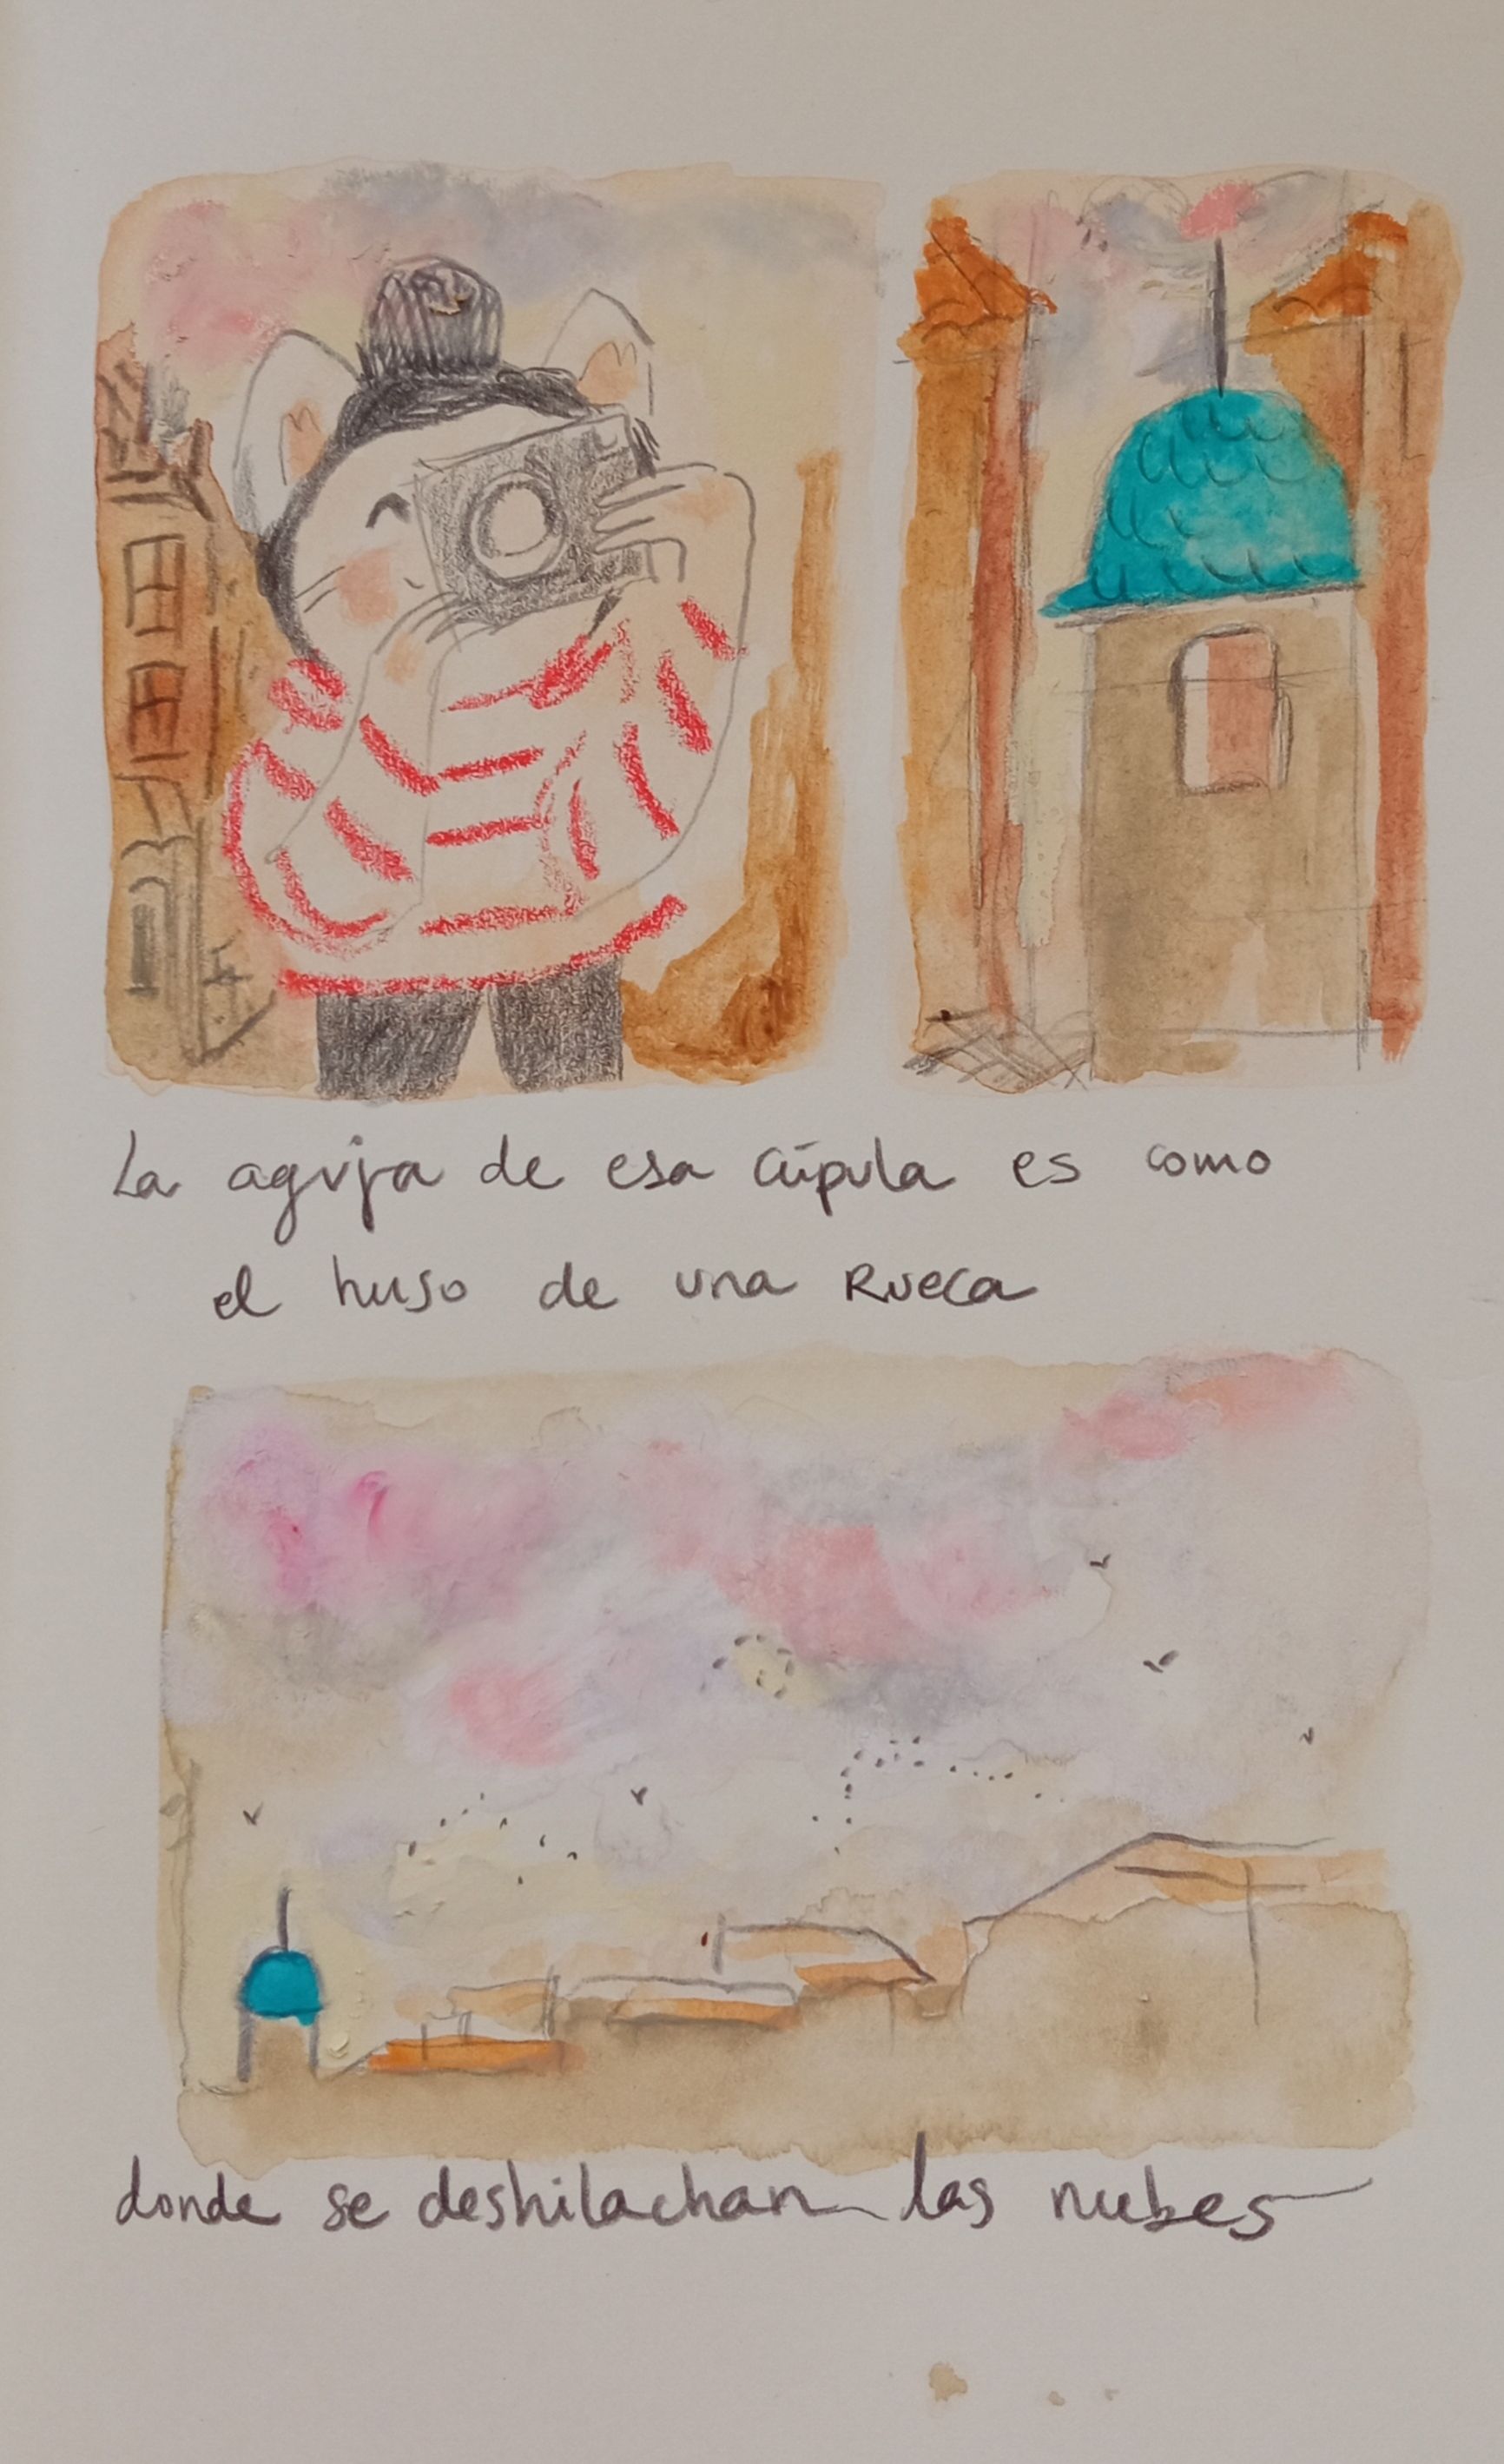 La aguja de esa cúpula es como
el huso de una Rueca
donde se deshilachan las nubes